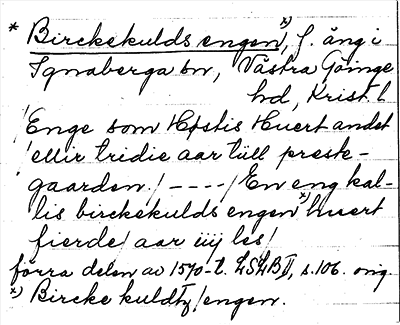 * Birckekulds engen x), f. äng i
Ignaberga sn, Västra Göinge
hd, Krist. l
/Enge som Høstis Huert andet
/ellir tridie aar till prest-
gaarden./ ---- / En eng kal-
lis birckekulds engen x) huert
fierde/ aar iiij les/
förra delen av 1570-t. LSLB II, s. 106. orig.
x) Bircke kuldtz/engen.